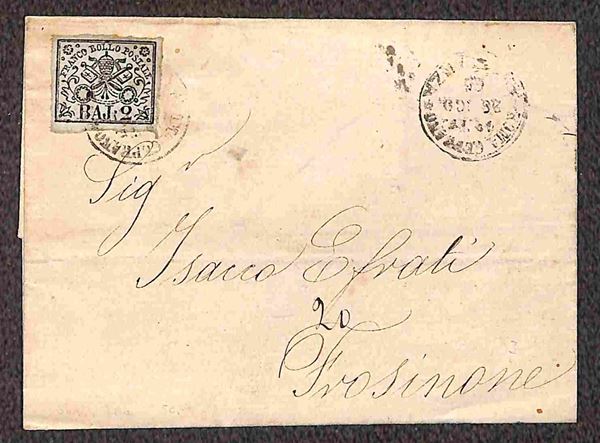 FRANCO BOLLO POSTALE
BAJ. 2
CEPRANO
Sigr
Isacco Efrati
20
Frosinone